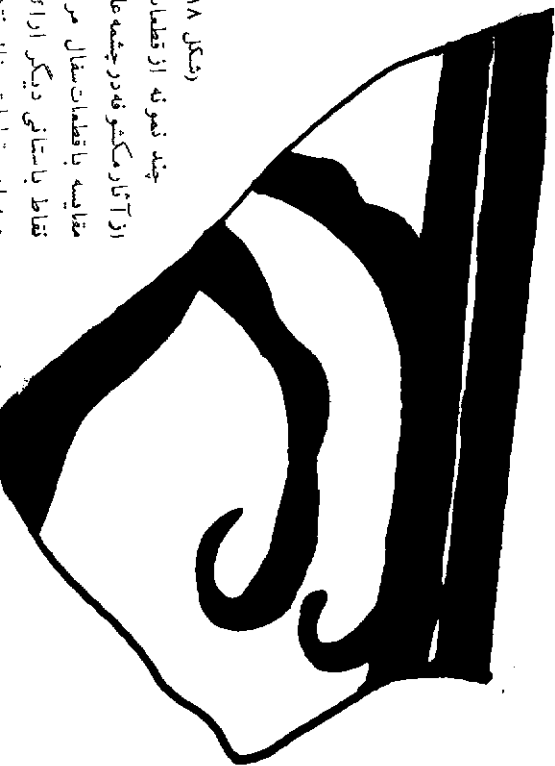 (شکل ۱۸
چند نمونه از قطعات
از آثار مکشوفه در چشمه عل
مقایسه با قطعات سفال مر
نقاط باستانی دیگر ارائ